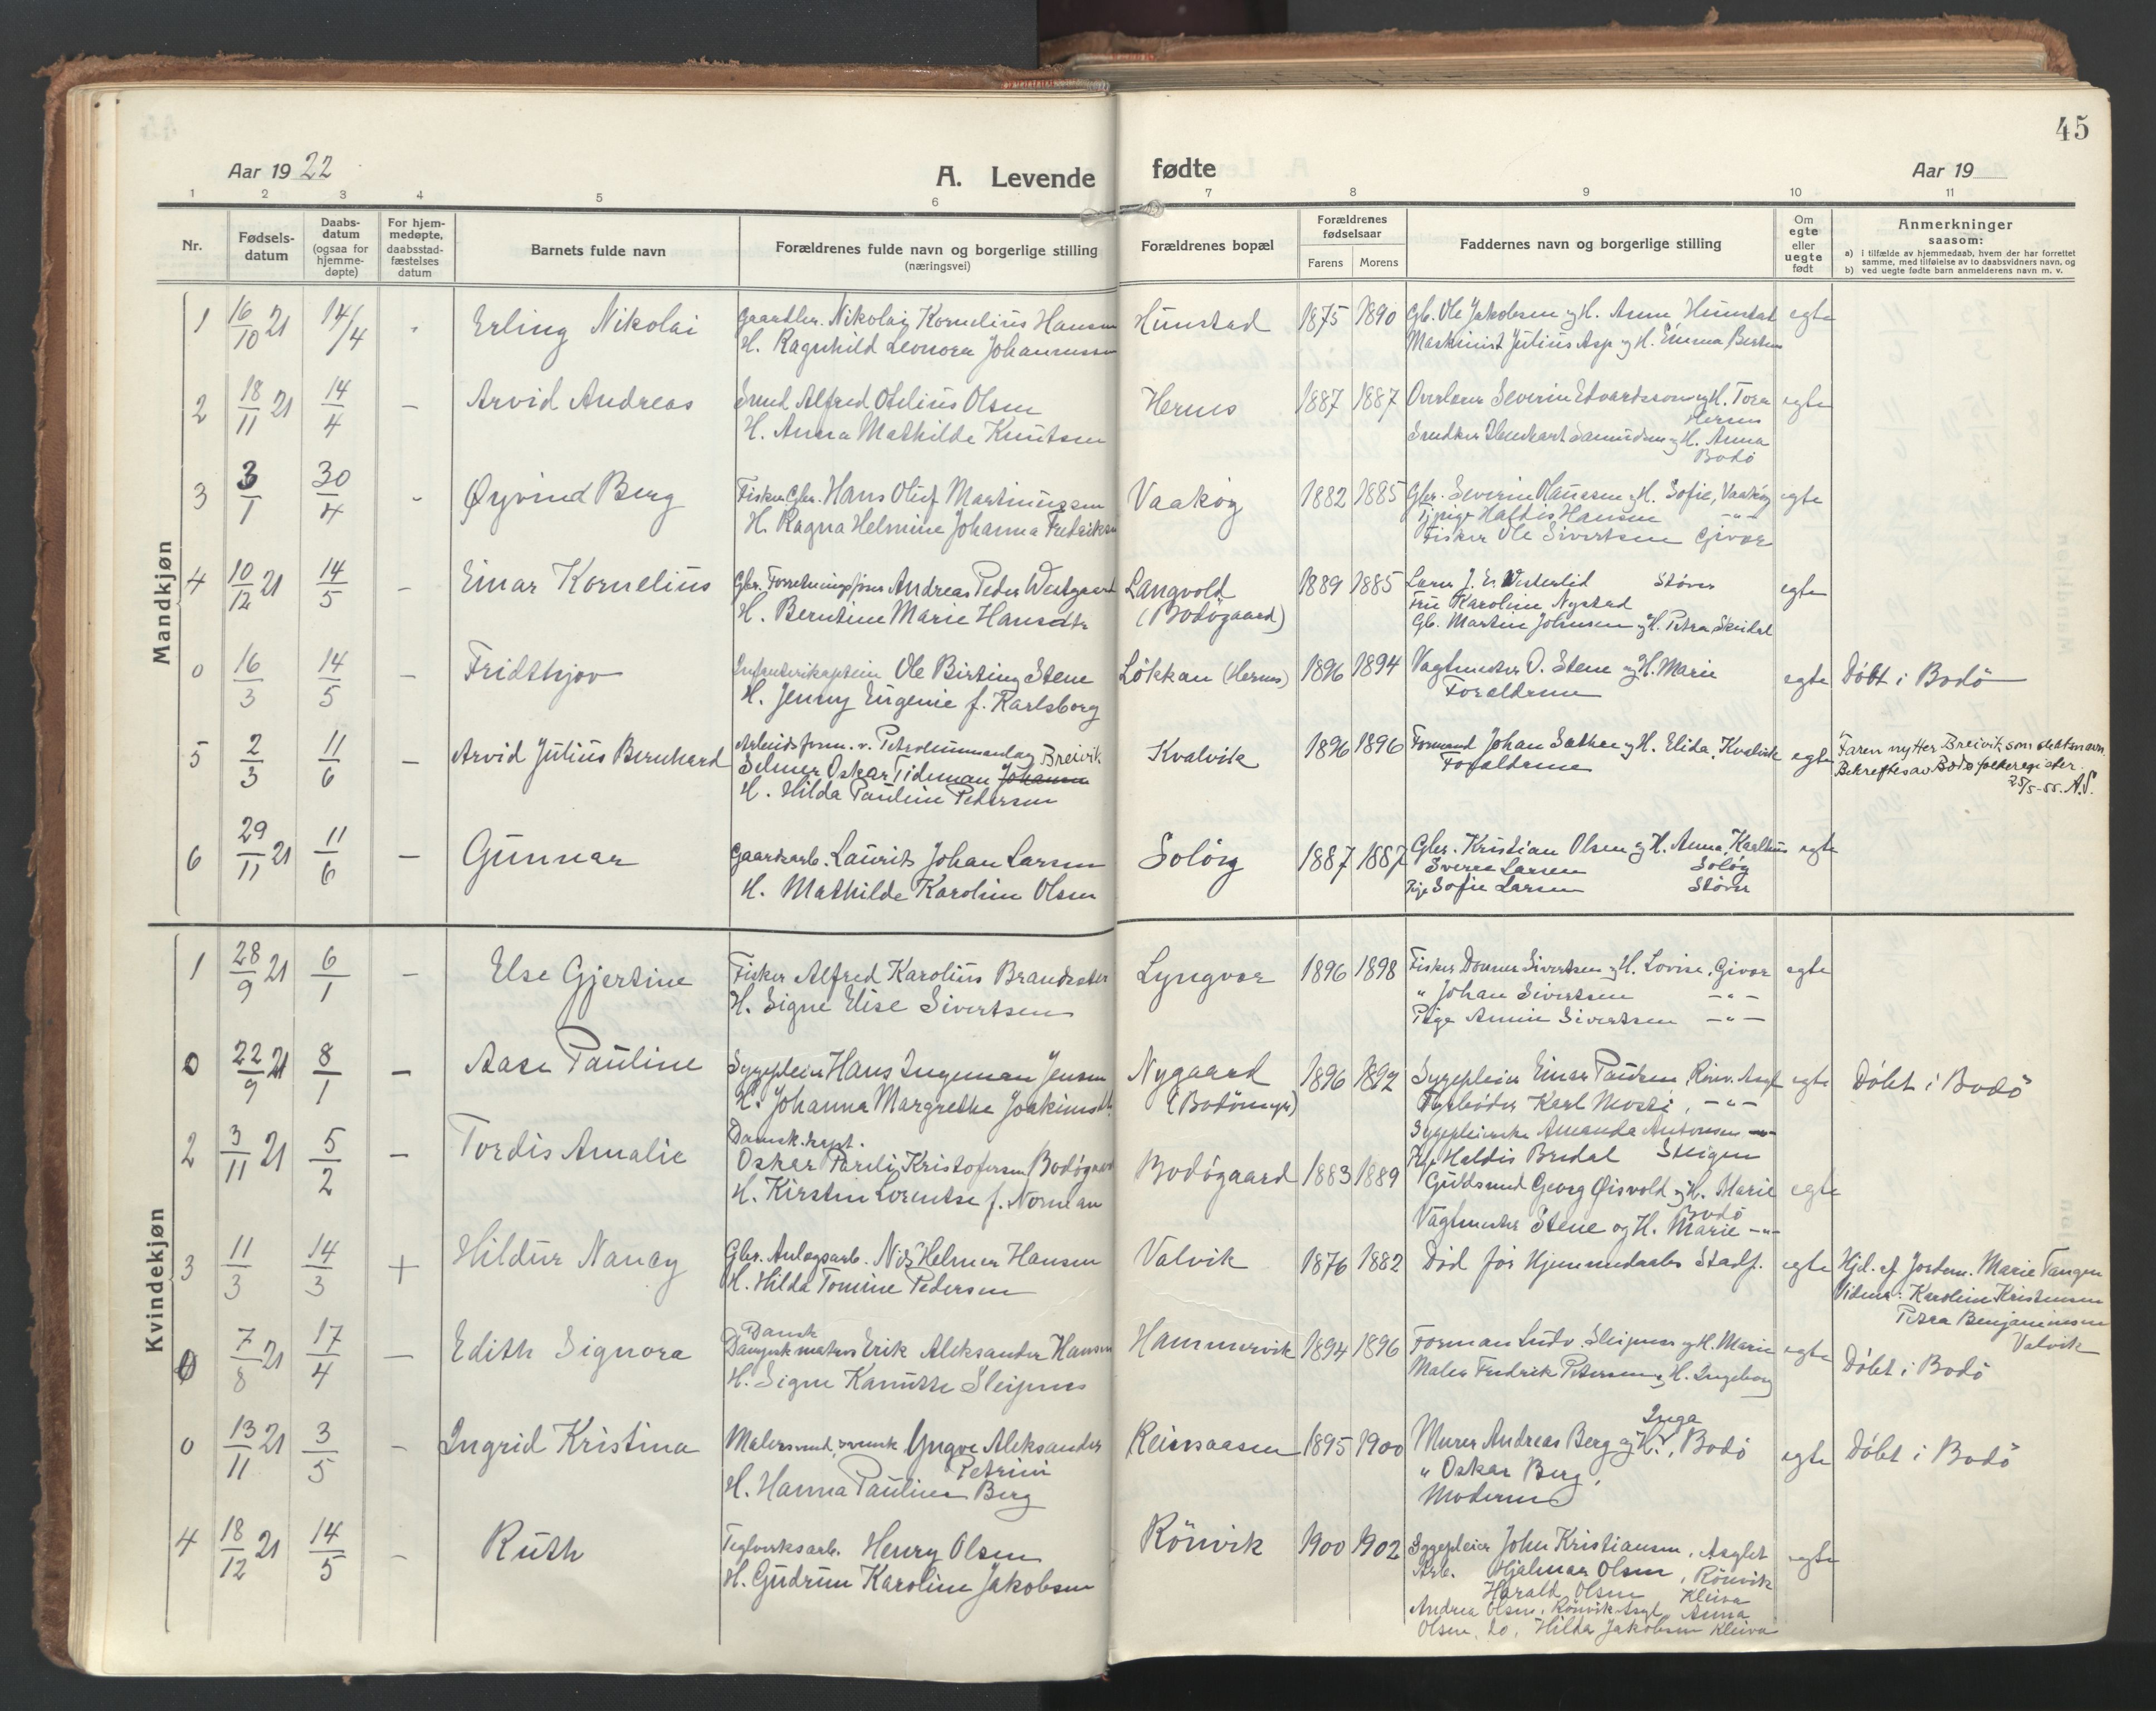 45
Aar 1922
A. Levende fødte
Aar 19
1 2 3 4 5 6 7 8 9 10 11
Nr.
Fødsels-
datum
Daabs-
datum
(ogsaa for
hjemme-
døpte)
For hjem-
medøpte,
daabsstad-
fæstelses
datum
Barnets fulde navn
Forældrenes fulde navn og borgerlige stilling
(næringsvei)
Forældrenes bopæl
Forældrenes
fødselsaar
Farens Morens
Faddernes navn og borgerlige stilling
Om
egte
eller
uegte
født
Anmerkninger
saasom:
a) i tilfælde av hjemmedaab, hvem der har forrettet
samme, med tilføielse av to daabsvidners navn, og
b) ved uegte fødte barn anmelderens navn m. v.
Mandkjøn
1 16/10 21 14/4 Erling Nikolai Gaardbr. Nikolai Kornelius Hansen Hunstad 1875 1890 Gb. Ole Jakobsen og H. Anna Hunstad egte
H. Ragnhild Leonora Johannessen Maskinist Julius Asp og H. Emma
2 18/11 21 14/4 - Arvid Andreas Smed Alfred Otelius Olsen Hernes 1887 1887 Overlærer Severin Edvardsson og H. Tora egte
Hernes
H. Anna Mathilde Knutsen og H. Anna
Bodø
3 3/1 30/4 - Øyvind Berg Fisker Gbr. Hans Oluf Martinussen Vaakøy 1882 1885 Gbr. Severin Hansen og H. Sofie, Vaakøy egte
Haldis Hansen -"-
H. Ragna Helmine Johanna Fredriksen Fisker Ole Sivertsen Givær
4 10/12 21 14/5 - Einar Kornelius Gbr. Forretningsfører Andreas Peder Westgaard Langvold 1889 1885 Lærer J. E. Westerlid Støver egte
H. Berntine Marie Hansdtr (Bodøgaard) Fru Karoline Nystad
Gb. Martin Johnsen og H. Petra Skeidal
0 16/3 14/5 - Fridthjov Infanterikaptein Ole Birting Stene Løkkan (Hernes) 1896 1894 Vagtmester O. Stene og H. Marie egte Døbt i Bodø
H. Jenny Eugenie f. Karlsborg Forældrene
5 2/3 11/6 - Arvid Julius Bernhard Arbeidsform. v. Petroleumsanlæg Breivik. Kvalvik 1896 1896 Formand Johan Sæther og H. Elida, Kvalvik egte Faren nytter Breivik som slektsnavn.
Selmer Oskar Tideman Johansen Forældrene Bekreftes av Bodø folkeregister.
H. Hilda Pauline Pedersen 25/5-55. A.S.
6 29/11 21 11/6 - Gunnar Gaardsarb. Laurits Johan Larsen Soløy 1887 1887 Gbr. Kristian Olsen og H. Anna, Kaalhus egte
Sverre Larsen Soløy
H. Mathilde Karoline Olsen Pige Sofie Larsen Støver
Kvindekjøn
1 28/9 21 6/1 - Else Gjertine Fisker Alfred Karolius Brandsæter Lyngvær 1896 1898 Fisker Donner Sivertsen og H. Lovise, Givær egte
H. Signe Elise Sivertsen " Johan Sivertsen -"-
Pige Annie Sivertsen -"-
0 22/9 21 8/1 - Aase Pauline Sygepleier Hans Ingeman Jensen Nygaard 1896 1892 Sygepleier Einar Paulsen, Rønv. Asyl egte Døbt i Bodø
H. Johanna Margrethe Joakimsdtr. (Bodømyr) Fyrbøder Karl Moski, -"-
Sygepleierske Amanda Antonsen -"-
2 3/11 21 5/2 - Tordis Amalie Dansk. kapt. Haldis Bredal Steigen
Oskar Pareli Kristofersen Bodøgaard Bodøgaard 1883 1889 Guldsmed Georg Øisvold og H. Marie egte
Bodø
H. Kirsten Lorentse f. Norman Vagtmester Stene og H. Marie -"-
3 11/3 14/3 + Hildur Nancy Gbr. Anlægsarb. Nils Helmer Hansen Valvik 1876 1882 Død før Hjemmedaabs Stadf. egte Hjd. af Jordem. Marie Tangen
H. Hilda Tomine Pedersen Vidner: Karoline Kristensen
Petra Benjaminsen
Valvik
0 7/8 21 17/4 - Edith Signora Dansk
matros Erik Aleksander Hansen Hammervik 1894 1896 Forman Ludv. Sleipnes og H. Marie egte Døbt i Bodø
H. Signe Kanutte Sleipnes Maler Fredrik Petersen og H. Ingeborg
0 13/11 21 3/5 - Ingrid Kristina Malersvend, svensk Yngve Aleksander Reinsaasen 1895 1900 Murer Andreas Berg og H. Inga, Bodø egte Døbt i Bodø
Petrini " Oskar Berg,
H. Hanna Pauline Berg Moderen
4 18/12 21 14/5 - Ruth Teglverksarb. Henry Olsen Rönvik 1900 1902 Sygepleier John Kristiansen, Asylet egte
H. Gudrun Karoline Jakobsen Arb. Hjalmar Olsen, Rönvik
Harald Olsen Kleiva
Andrea Olsen, Rönvik Asyl, Anna
Olsen, do, Hilda Jakobsen Kleiva